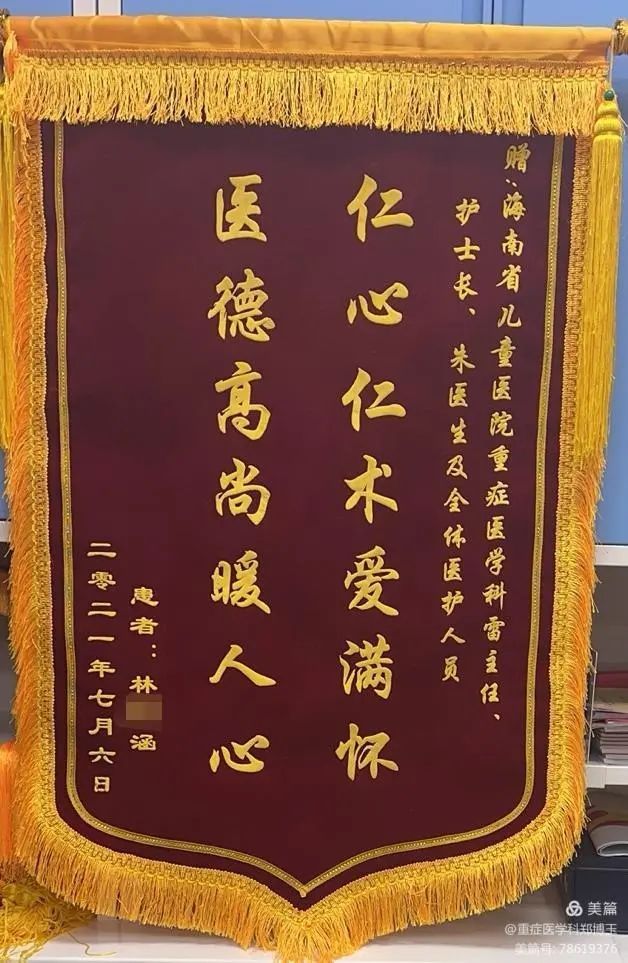 赠:海南省儿童医院重症医学科雷主任、
护士长、朱医生及全体医护人员
仁心仁术爱满怀
医德高尚暖人心
患者:林 涵
二零二一年七月六日
美篇
@重症医学科郑博玉
美篇号:78619376